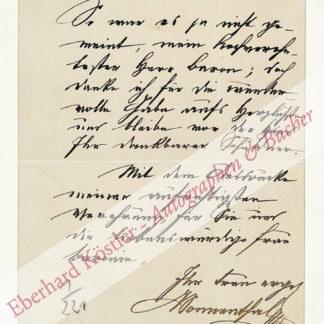 So war es ja nicht ge-
meint, mein hochverehr-
tester Herr Baron; doch
danke ich für die wunder
volle Gabe aufs Herzlichste
und bleibe vor der
Ihr dankbarer Schuldner.
Mit dem Ausdrucke
meiner aufrichtigsten
Verehrung für Sie und
die liebenswürdige Frau
Baronin.
Ihr treu ergeb
Sonnenthal
I
221
Eberhard Köstler - Autographen & Bücher